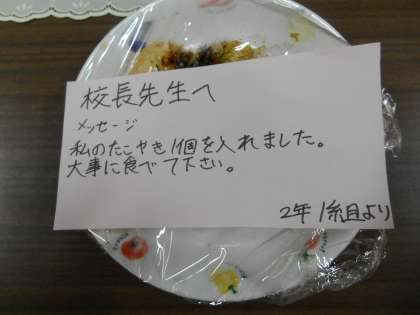 校長先生へ
メッセージ
私のたこやき1個を入れました。
大事に食べて下さい。
2年1組より